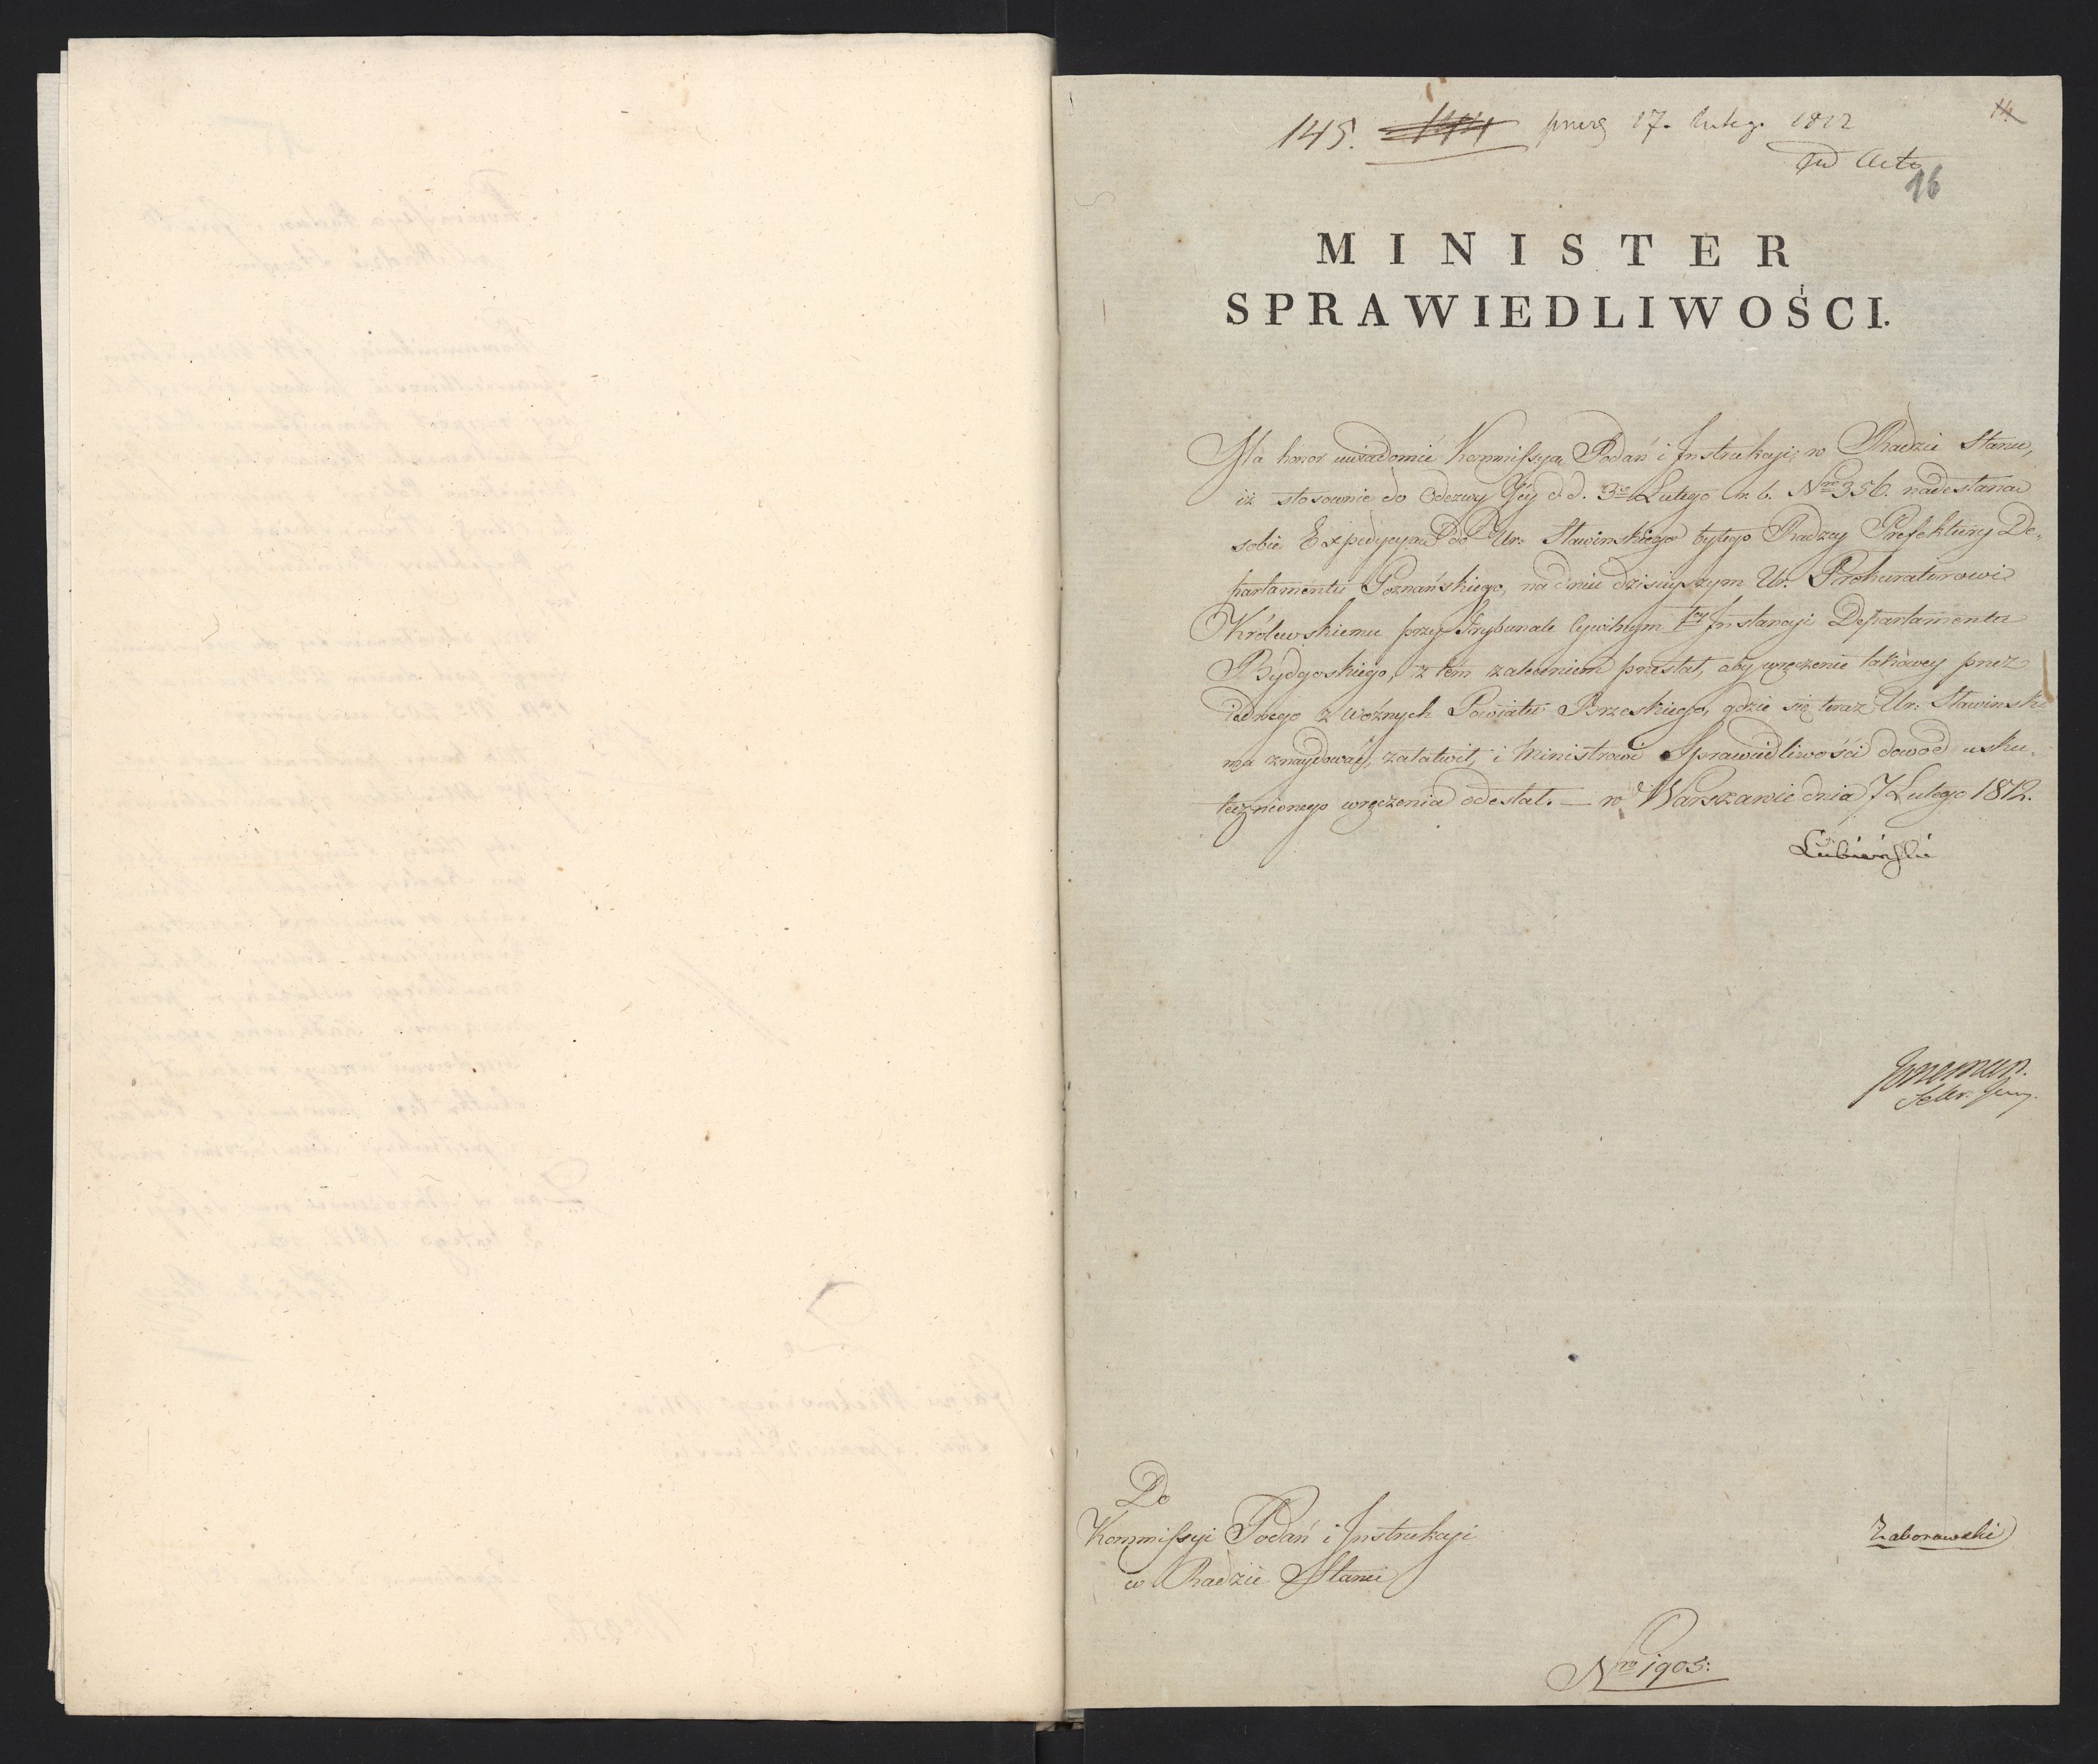 145. 144 17. luteg. 1812
ad Acta
14
16
MINISTER
SPRAWIEDLIWOŚCI.
Ma honor uwiadomić Kommissyą Podań i Instrukcji w Radzie Stanu,
iż stosownie do Odezwy Jey d. d. 3go Lutego r. b. Nro 356. nadesłaną
sobie Expedycyą do Ur. Sławinskiego byłego Radzcy Prefektury De-
partamentu Poznańskiego, na dniu dzisieyszym Ur. Prokuratorowi
Królewskiemu przy Trybunale Cywilnym 1ey Instancyi Departamentu
Bydgoskiego, z tém zaleceniem przesłał, aby wręczenie takowey przez
iednego z Woźnych Powiatu Brzeskiego, gdzie się teraz Ur: Sławinski
ma znaydować, załatwił, i Ministrowi Sprawiedliwości dowód usku-
tecznionego wręczenia odesłał. — w Warszawie dnia 7 Lutego 1812.
Łubieński
Sekr. Jen.
Do
Kommissyi Podań i Instrukcyi
w Radzie Stanu
Zaborowski
Nro 1905: